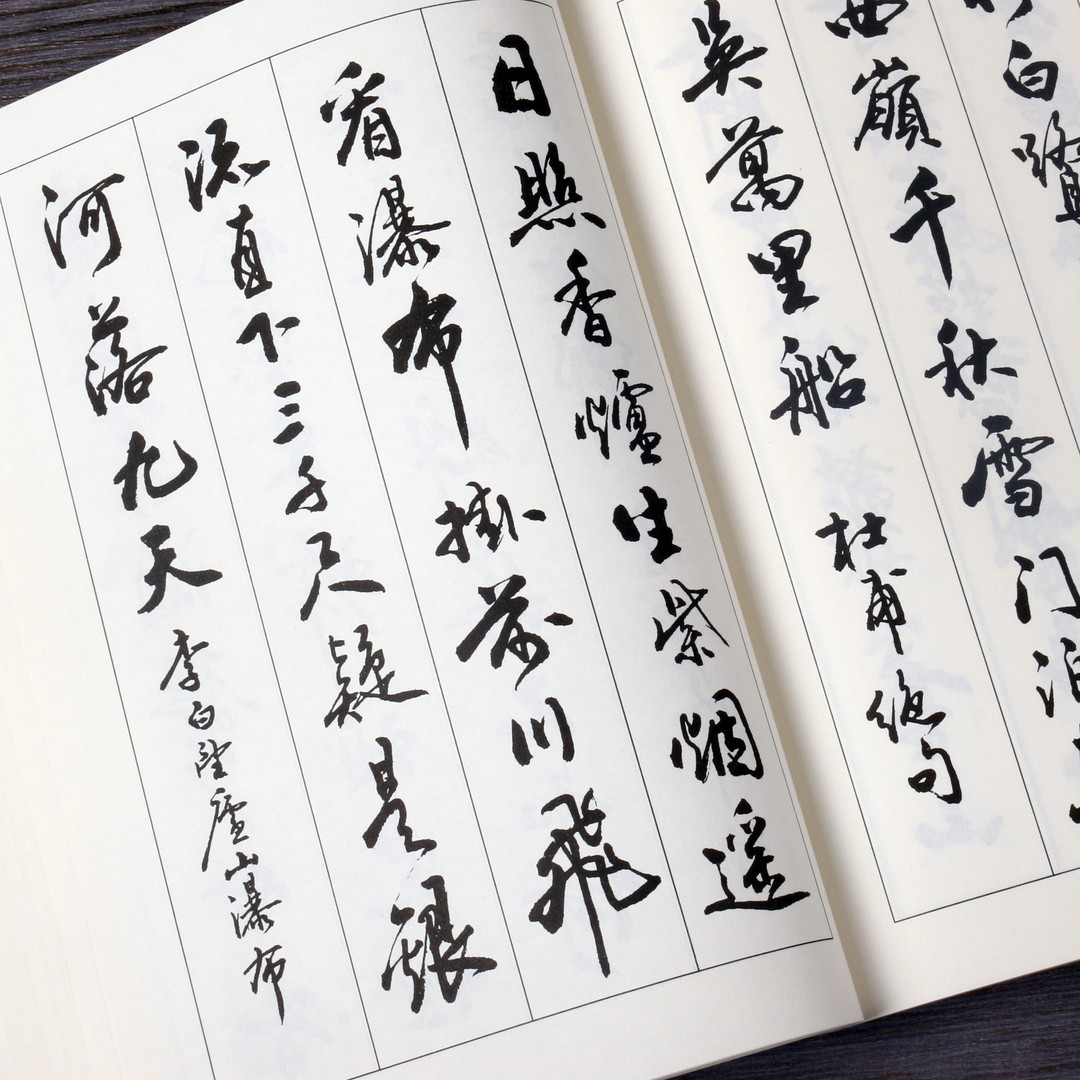 白鷺
西嶺千秋雪门泊
吳萬里船 杜甫绝句
日照香爐生紫烟遥
看瀑布掛前川飛
流直下三千尺疑是銀
河落九天 李白望廬山瀑布